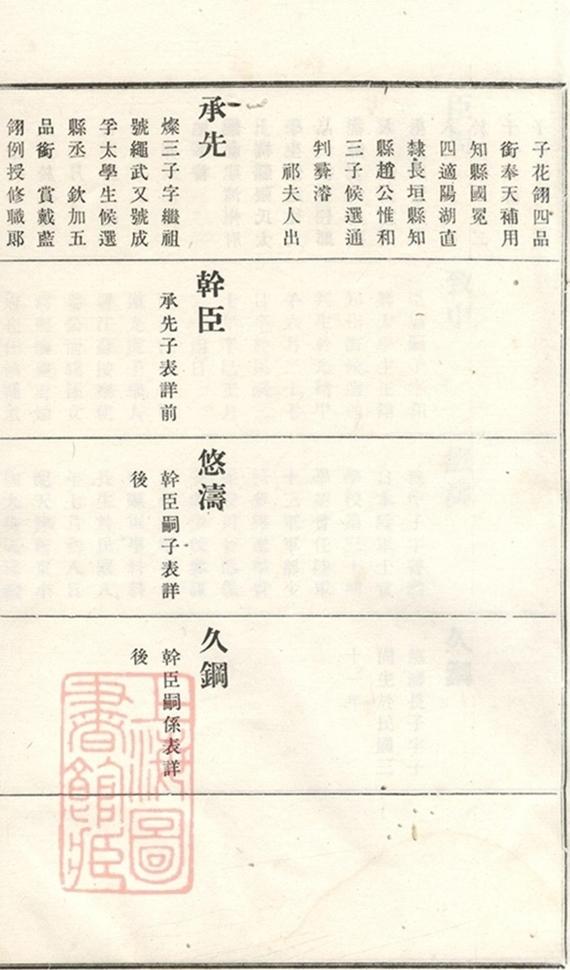 子花翎四品
銜奉天補用
知縣國冕二
四適陽湖直
隸長垣縣知
縣趙公惟和
三子候選通
判彜濬
祁夫人出
承先
燦三子字繼祖
號繩武又號成
孚太學生候選
縣丞 欽加五
品銜 賞戴藍
翎例授修職郎
幹臣
承先子表詳前
悠濤
幹臣嗣子表詳
後
久鋼
幹臣嗣係表詳
後
上海圖
書館藏